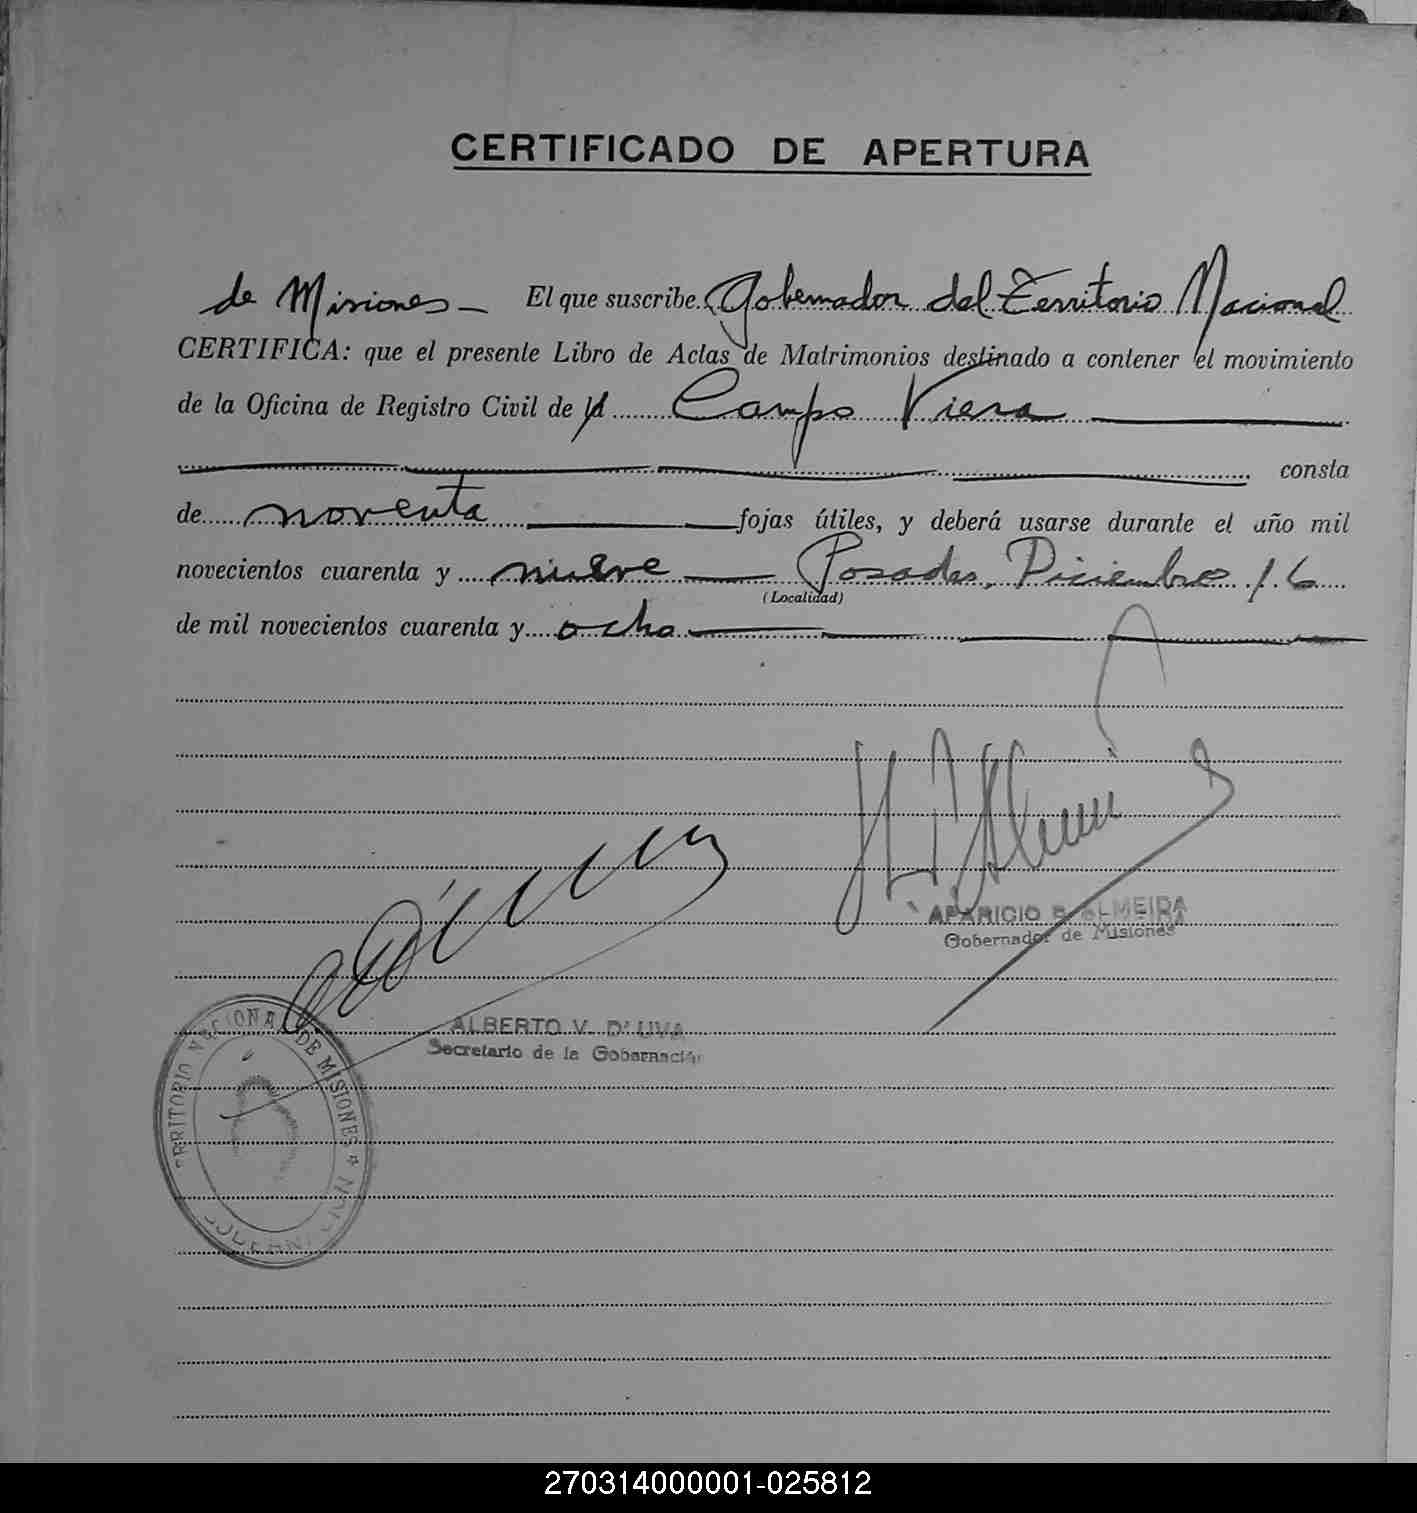 CERTIFICADO DE APERTURA
de Misiones - El que suscribe Gobernador del Territorio Nacional
CERTIFICA: que el presente Libro de Actas de Matrimonios destinado a contener el movimiento
de la Oficina de Registro Civil de Campo Viera
consta
de noventa fojas útiles, y deberá usarse durante el año mil
novecientos cuarenta y nueve Posadas, Diciembre 16
(Localidad)
de mil novecientos cuarenta y ocho
APARICIO ALMEIDA
Gobernador de Misiones
ALBERTO V. D'UVA
Secretario de la Gobernación
TERRITORIO NACIONAL DE MISIONES
270314000001-025812